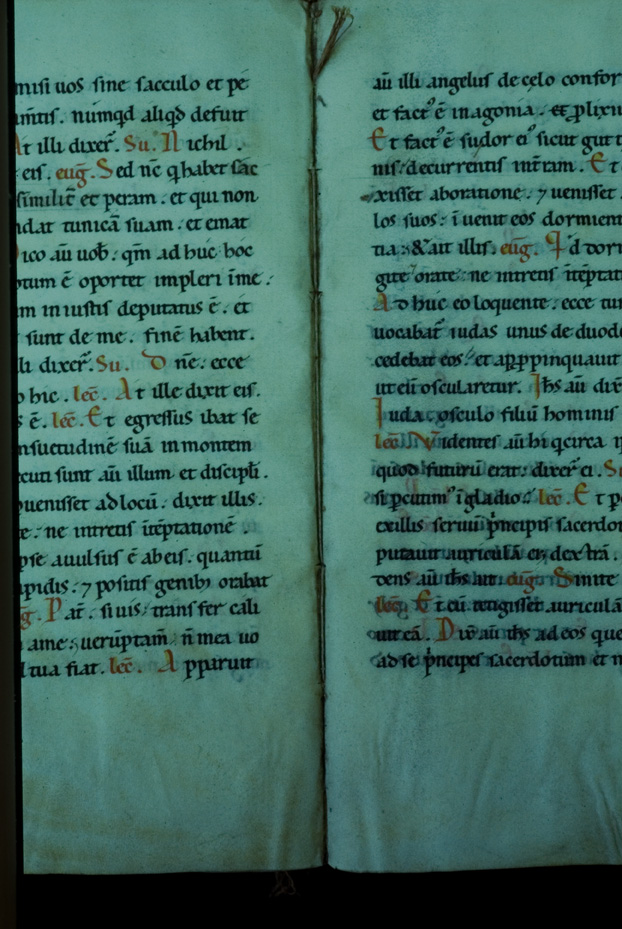 misi uos sine sacculo et pe
am̃tis. nũmqd aliqd defuit
At illi dixer̃. Su. Nichil.
eis. eug̃. Sed nc̃ q habet sac
similit̃ et peram. et qui non
dat tunicã suam. et emat
ico aũ uob̃. qm̃ ad huc hoc
ptum ẽ oportet impleri ĩme.
m in iustis deputatus ẽ. et
sunt de me. finẽ habent.
li dixer̃. Su. Dñe. ecce
o hic. lec̃. At ille dixit eis.
s ẽ. lec̃. Et egressus ibat se
nsuetudinẽ suã in montem
ecuti sunt aũ illum et discipłi.
uenisset ad locũ. dixit illis.
e. ne intretis ĩtẽptationẽ.
pse auulsus ẽ ab eis. quantũ
apidis. ⁊ positis genibꝫ orabat
g̃. Pat̃. si uis. transfer cali
a me. uerũptam̃ ñ mea uo
tua fiat. lec̃. Apparuit
aũ illi angelus de celo confor
et fact᾽ ẽ in agonia. et ꝓlixi
Et fact᾽ ẽ sudor ei᾽ sicut gutt
nis decurrentis inŧram. Et
xisset aboratione. ⁊ uenisset
los suos. ĩuenit eos dormient
tia. & ait illis. eug̃. Id dor
gite orate. ne intretis ĩtẽptati
Ad huc eo loquente. ecce tur
uocabat̃ iudas unus de duode
cedebat eos. et apꝓpinquauit
ut eũ oscularetur. Ihs aũ dix̃
Iuda. osculo filiũ hominis
lec̃. Videntes aũ hi q circa i
quod futurũ erat. dixer̃ ei. Su
si ꝑcutim᾽ ĩ gladio. lec̃. Et ꝑ
ex illis seruũ p̃ncipis sacerdo
putauit auriculã ei᾽ dextrã.
dens aũ ihs ait. eug̃. Sinite
lec̃. Et cũ tetigisset auriculã
uit eã. Dix̃ aũ ihs ad eos que
ad se p̃ncipes sacerdotum et m